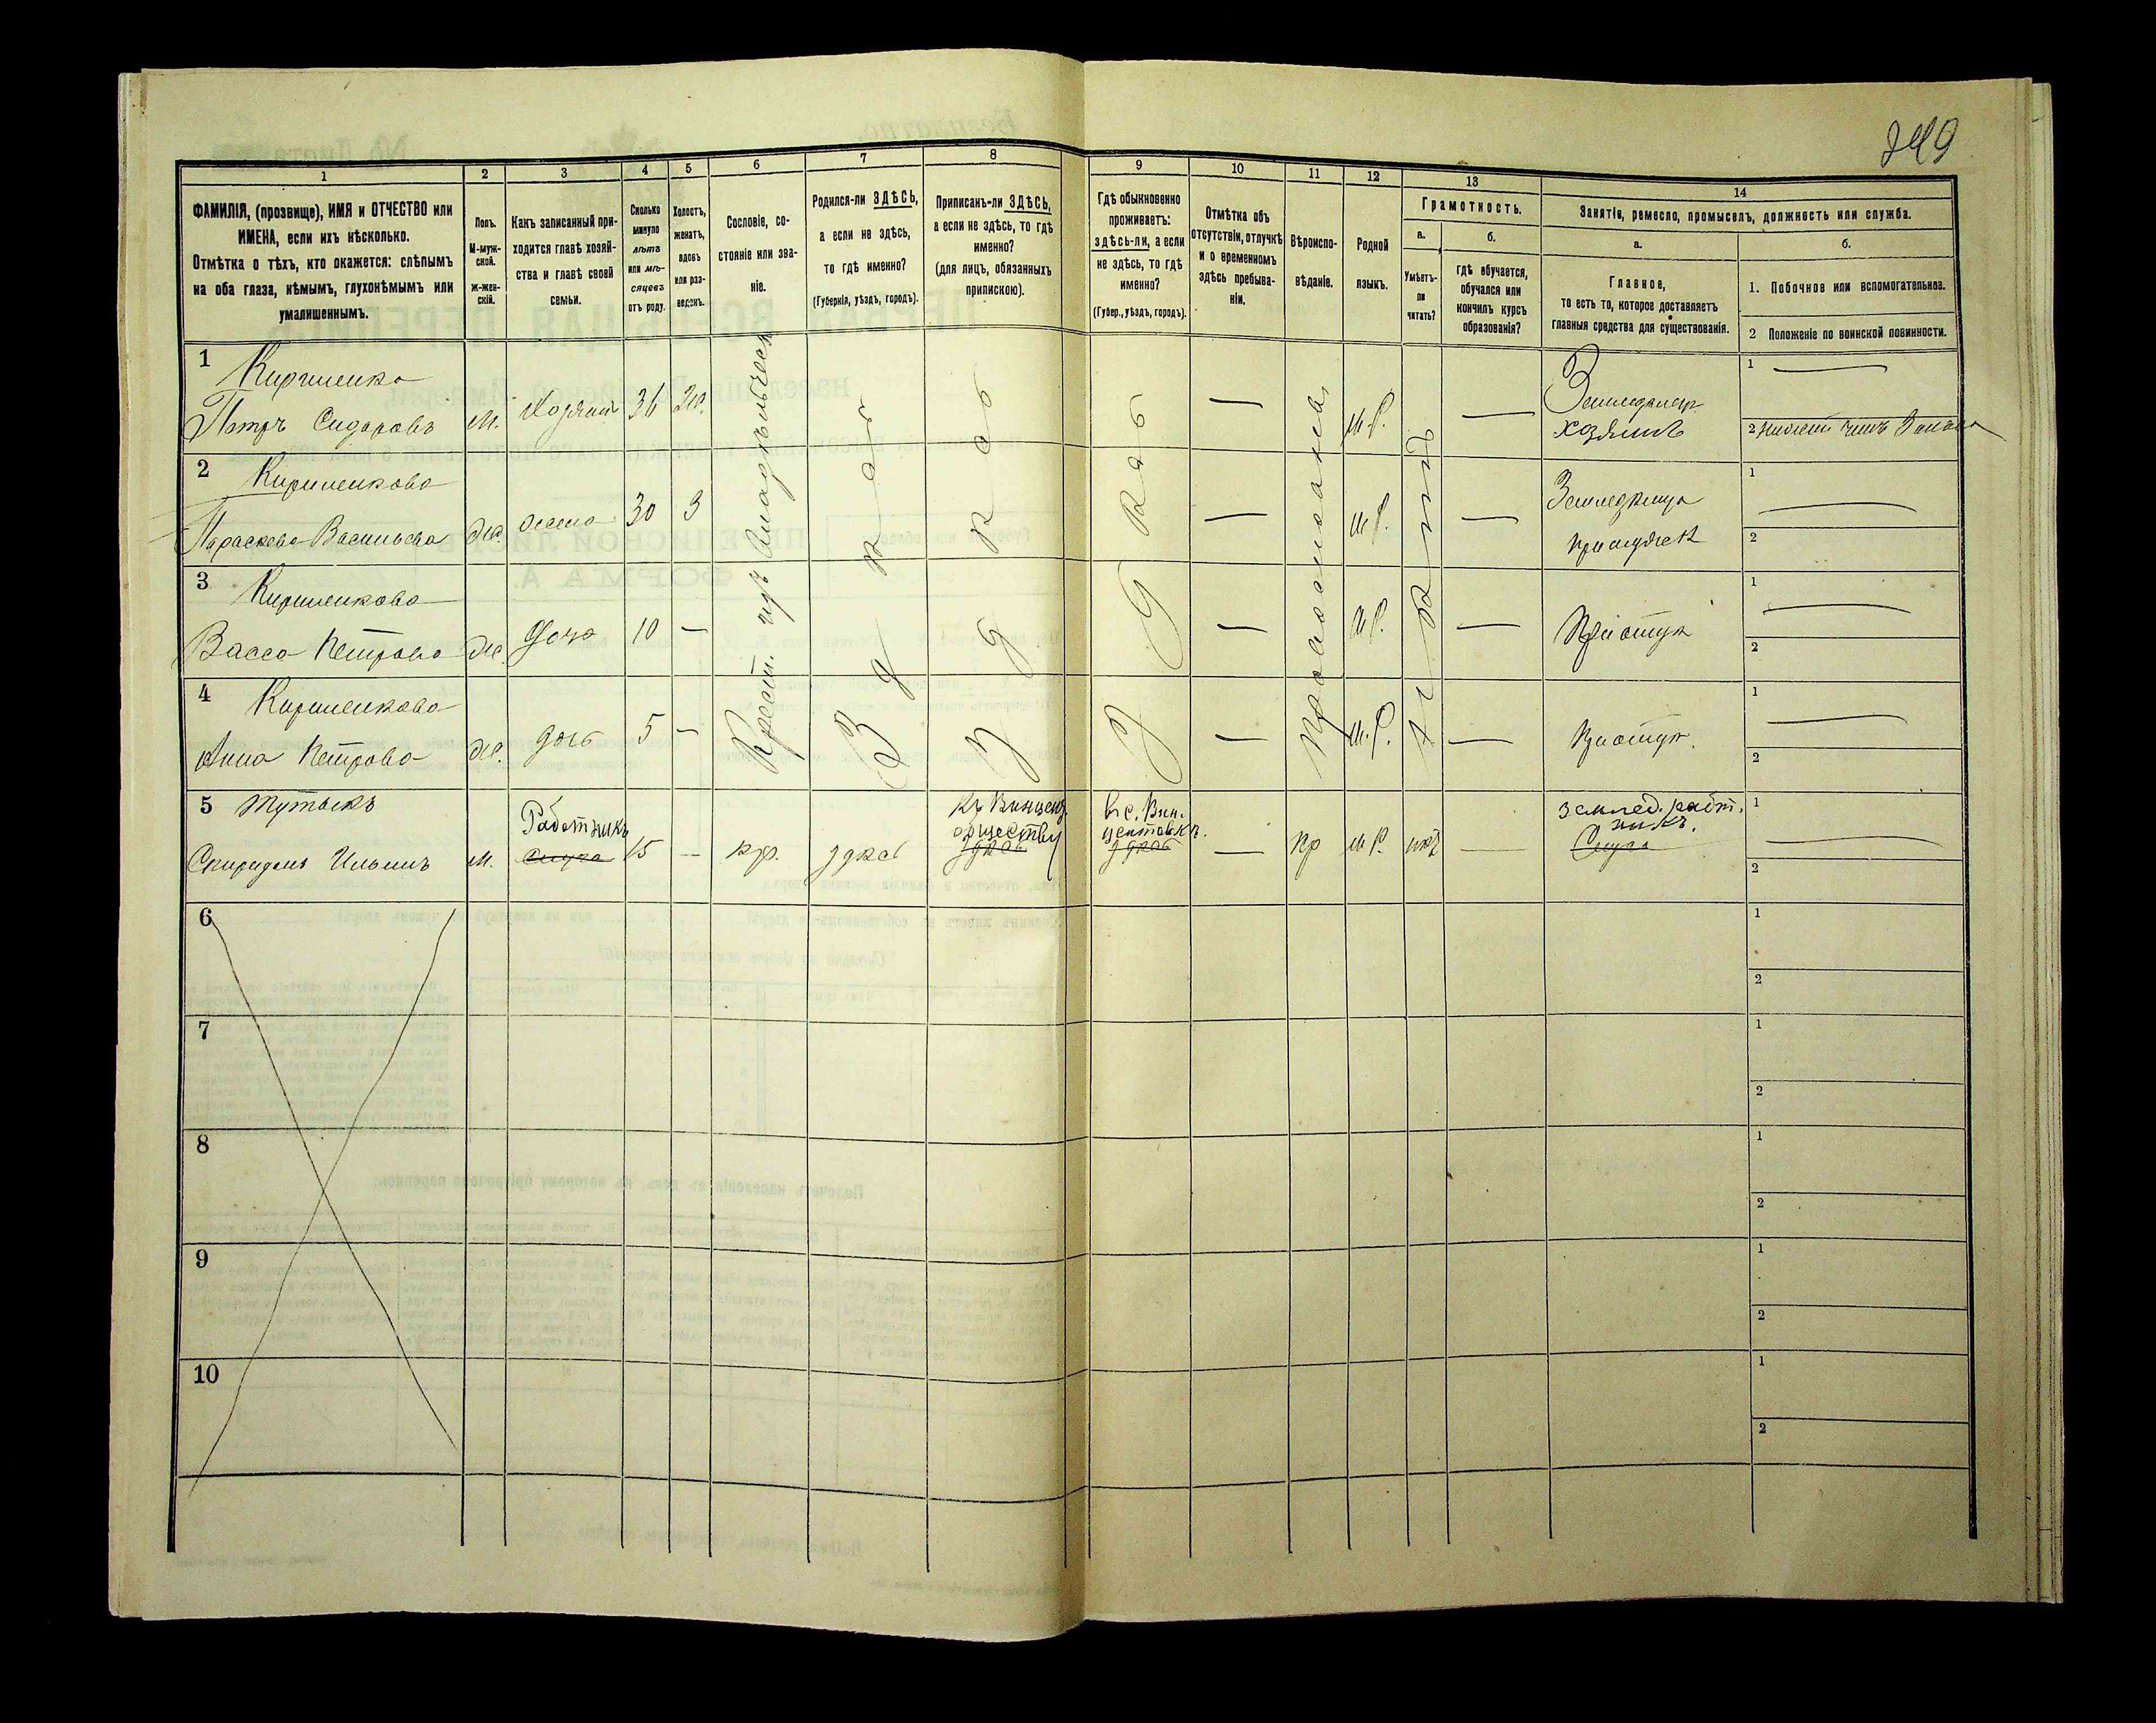 249
1 2 3 4 5 6 7 8 9 10 11 12 13 14
ФАМИЛІЯ, (прозвище), ИМЯ и ОТЧЕСТВО или
ИМЕНА, если ихъ нѣсколько.
Отмѣтка о тѣхъ, кто окажется: слѣпымъ
на оба глаза, нѣмымъ, глухонѣмымъ или
умалишеннымъ.
Полъ.
М-муж-
ской.
ж-жен-
скій.
Какъ записанный при-
ходится главѣ хозяй-
ства и главѣ своей
семьи.
Сколько
минуло
лѣтъ
или мѣ-
сяцевъ
отъ роду.
Холостъ,
женатъ,
вдовъ
или раз-
веденъ.
Сословіе, со-
стояніе или зва-
ніе.
Родился-ли ЗДѢСЬ,
а если не здѣсь,
то гдѣ именно?
(Губернія, уѣздъ, городъ).
Приписанъ-ли ЗДѢСЬ,
а если не здѣсь, то гдѣ
именно?
(для лицъ, обязанныхъ
припискою).
Гдѣ обыкновенно
проживаетъ:
здѣсь-ли, а если
не здѣсь, то гдѣ
именно?
(Губер., уѣздъ, городъ).
Отмѣтка объ
отсутствіи, отлучкѣ
и о временномъ
здѣсь пребыва-
ніи.
Вѣроиспо-
вѣданіе.
Родной
языкъ.
Грамотность.
а.
Умѣетъ-
ли
читать?
б.
гдѣ обучается,
обучался или
кончилъ курсъ
образованія?
Занятіе, ремесло, промыселъ, должность или служба.
а.
Главное,
то есть то, которое доставляетъ
главныя средства для существованія.
б.
1. Побочное или вспомогательное.
2 Положеніе по воинской повинности.
1 Кириленко
Петръ Сидоровъ М. Хозяинъ 36 Ж. М.Р.
хозяинъ
1
2
2 Кириленкова
Параскева Васильева Ж. жена 30 З М.Р.
1
2
3 Кириленкова
Васса Петрова Ж. дочь 10 — М.Р.
1
2
4 Кириленкова
Анна Петрова Ж. дочь 5 — М.Р.
1
2
Крест. изъ
Здѣсь
Здѣсь
Здѣсь
Православное
5
Спиридонъ Ильинъ М. Работникъ 15 — кр. здѣсь
обществу
здѣсь
вс. Вин-
здѣсь
пр М.Р. нѣт
землед. работ-
никъ.
1
2
6 1
2
7 1
2
8 1
2
9 1
2
10 1
2